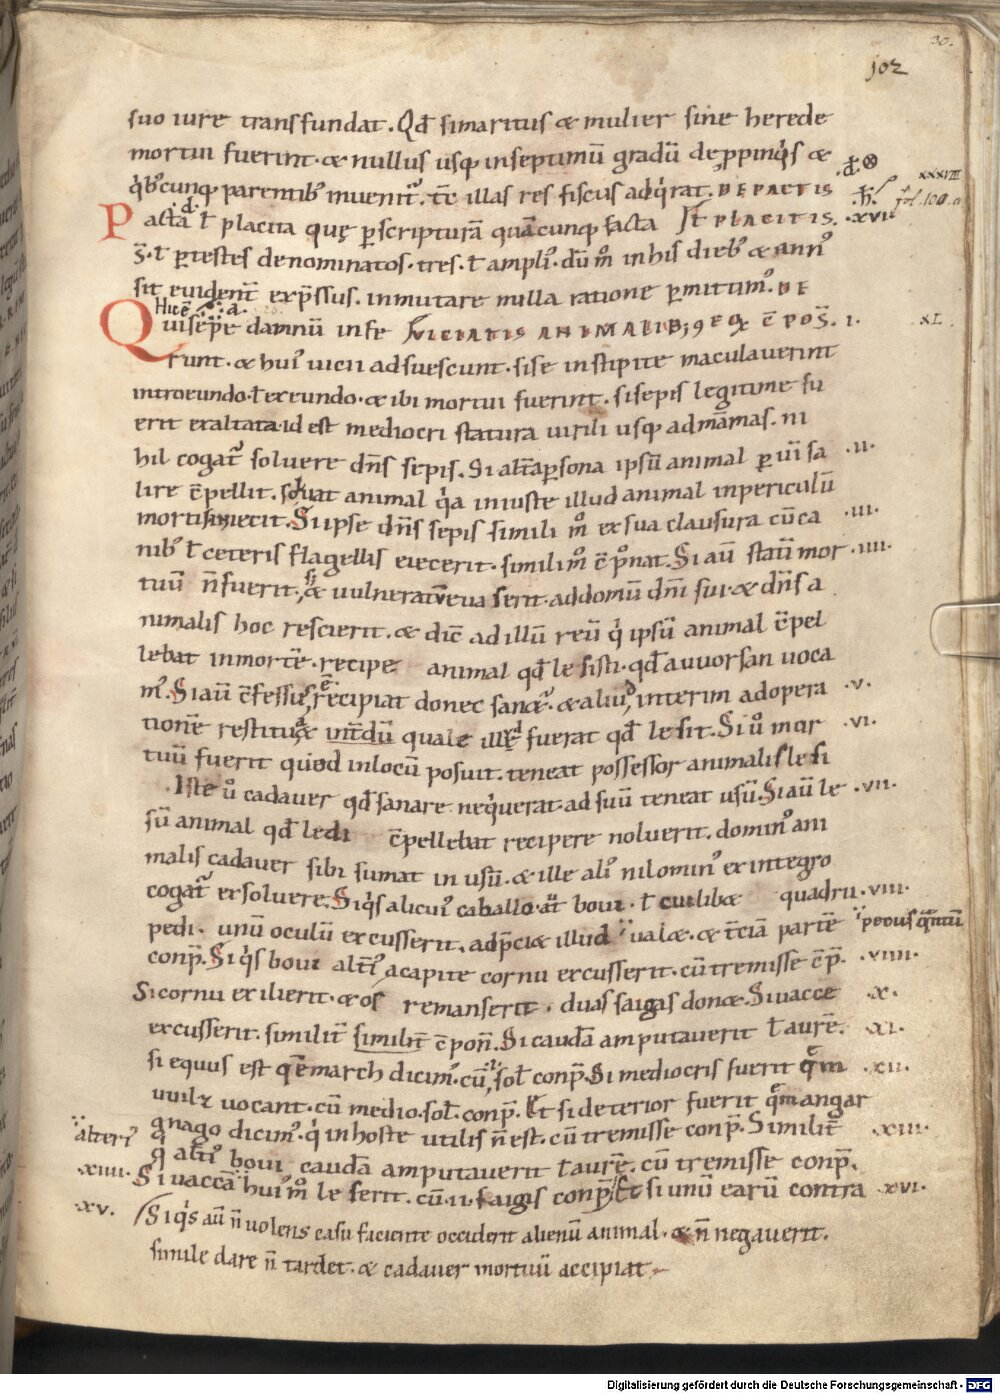 30.
102
suo iure transfundat. Qđ simaritus & mulier sine herede
mortui fuerint. & nullus usq; inseptimū gradū de ꝓpinq̇s &
q̇b;cunq; parentib; inuenit̄. tē illas res fiscus adq̇rat. DE PACTIS
xxxviii
P acta ł placita quę ꝑscripturā quācunq; facta ŧ PLACITIS. .xvi.
fol. 100. a
s̄. ł ꝑtestes denominatos. tres. ł ampli'. dū m̊ in his dieb; & ann'
sit euident̄ exp̄ssus. inmutare nulla ratione ꝑmittim'. DE
Q uisepe damnū infe VICIATIS ANIMALIB; ē POS̄. i.
xl.
runt. & hui' uicii adsuescunt. sise instipite maculauerint
introeundo. ł exeundo. & ibi mortui fuerint. sisepis legitime fu
erit exaltata. id est mediocri statura uirili usq; admāmas. ni
hil cogat̄ soluere dn̄s sepis. Si altāꝑsona ipsū animal ꝑ uī sa .ii.
lire c̄pellit. soluat animal q̇a iniuste illud animal inpericulū
mortis miecit. Si ipse dn̄s sepis simili m̊ exsua clausura cū ca .iii.
nib; ł ceteris flagellis eiecerit. simili m̊ c̄p̊nat. Si aū statī mor .iiii.
tuū n̄ fuerit, s; & uulneratū euaserit. addomū dn̄i sui. & dn̄s a
nimalis hoc rescierit. & dic̄ ad illū reū q̇ ipsū animal c̄pel
lebat inmortē. recipe animal qđ lesisti. qđ auuorsan uoca
m'. Si aū c̄fessus, recipiat donec san&'. & aliud interim adopera .v.
tionē restituat int̄dū quale illud fuerat qđ lesit. Si ů mor .vi.
tuū fuerit quod inlocū posuit. teneat possessor animalis lesi
. Iste ů cadauer qđ sanare nequerat ad suū teneat usū. Si aū le .vii.
sū animal qđ ledi c̄pellebat recipere noluerit. domin' ani
malis cadauer sibi sumat in usū. & ille ali' nilomin' exintegro
cogat̄ exsoluere. Si q̇s alicui' caballo. aūt boui. ł cuilib& quadru .viii.
pedi. unū oculū excusserit. adp̄ci& illud ual&. & t̄ciā partē pecus q̄ntū
conp̄. Si q̇s boui alt̄i' acapite cornu excusserit. cū tremisse c̄p̄. .viiii.
Si cornu exilierit. & os remanserit. duas saigas don&. Si uacce .x.
excusserit. similit̄ similit̄ c̄pon̄. Si caudā amputauerit ł aurē. .xi.
si equus est qē march dicim'. cū soł conp̄. Si mediocris fuerit q̄m .xii.
uuilz uocant. cū medio. soł. conp̄. Et si deterior fuerit q̄m angar
gnago dicim'. q̇ inhoste utilis n̄ est. cū tremisse conp̄. Similit̄ .xiii.
alteri'
q alt̄i' boui caudā amputauerit ł aurē. cū tremisse conp̄.
.xiiii. Si uaccā hui' m̊ leserit. cū .ii. saigis conp̄. Et si unū earū contra .xvi.
.xv. Si q̇s aū n̄ uolens casu faciente occiderit alienū animal. & n̄ negauerit.
simile dare n̄ tardet. & cadauer mortuū accipiat
Digitalisierung gefördert durch die Deutsche Forschungsgemeinschaft - DFG